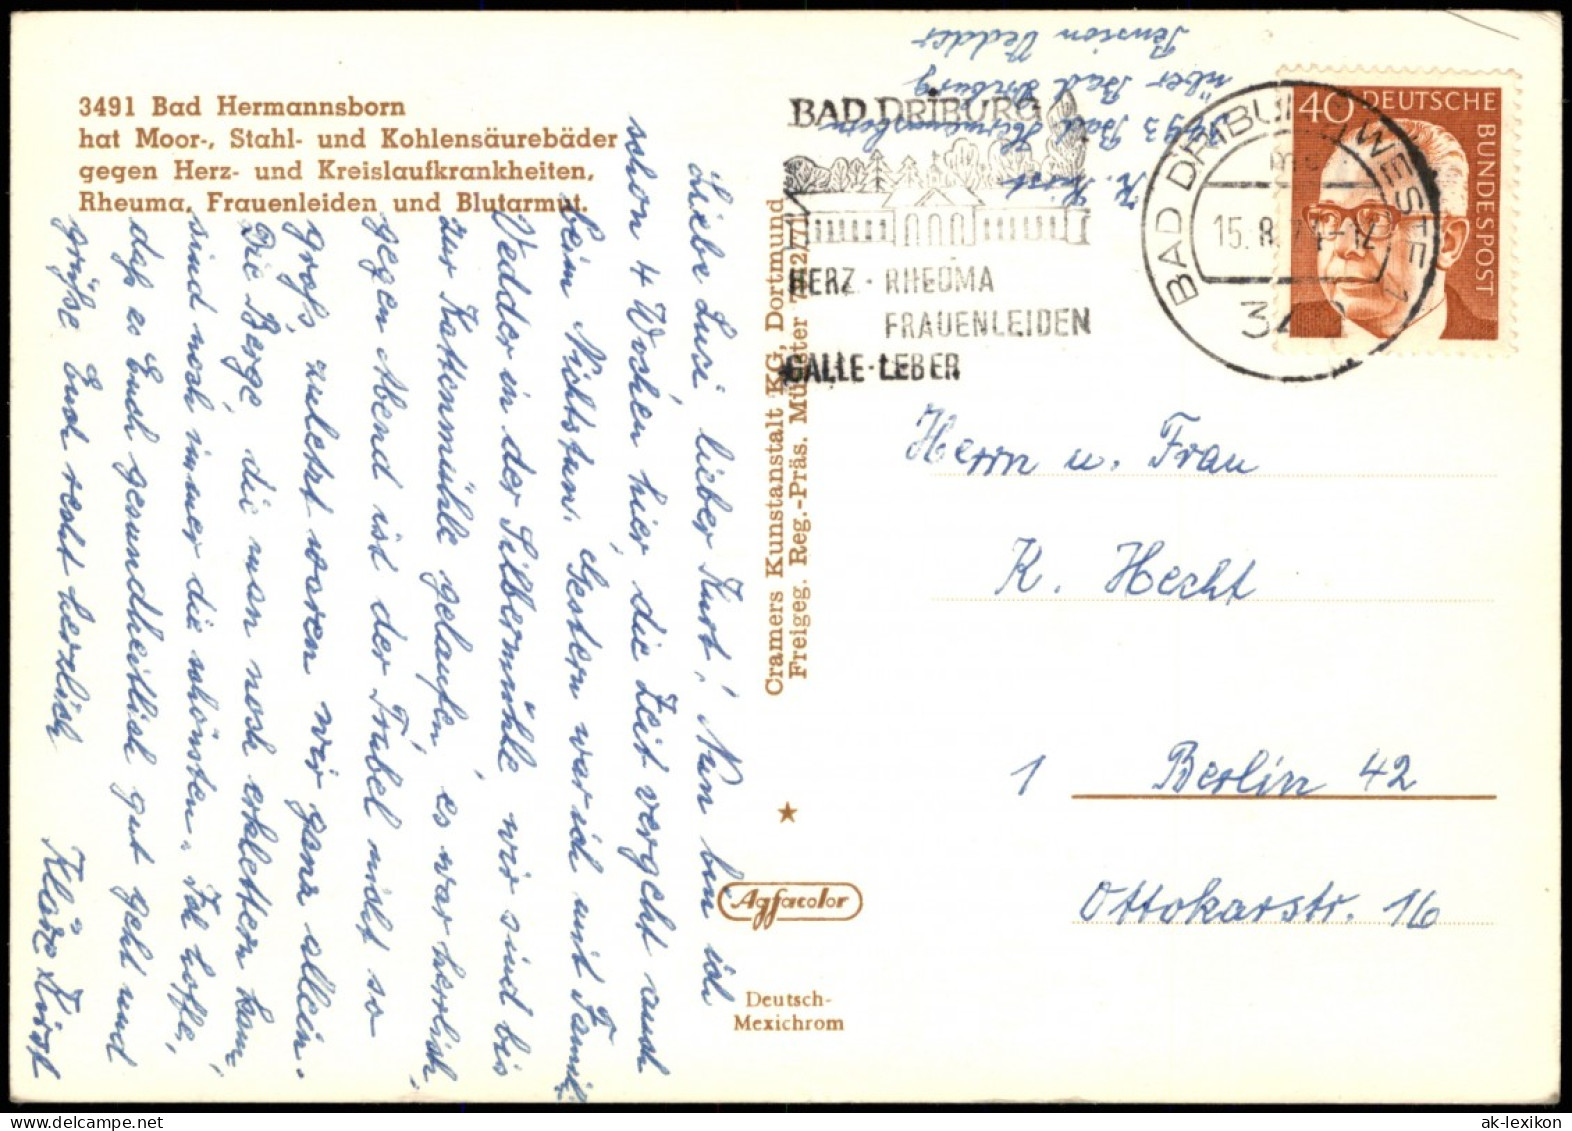 3491 Bad Hermannsborn
hat Moor-, Stahl- und Kohlensäurebäder
gegen Herz- und Kreislaufkrankheiten,
Rheuma, Frauenleiden und Blutarmut.
Liebe Lusi lieber Kurt! Nun bin ich
schon 4 Wochen hier, die Zeit vergeht auch
beim Nichtstun. Gestern war ich mit Famil.
Vedder in der Silbermühle wir sind bis
zur Kattenmühle gelaufen, es war herrlich,
gegen Abend ist der Trubel nicht so
groß zuletzt waren wir ganz allein.
Die Berge die man noch erklettern kann
sind noch immer die schönsten. Ich hoffe,
daß es Euch gesundheitlich gut geht und
grüße Euch recht herzlich
Kläre Fürst
Cramers Kunstanstalt KG, Dortmund
Freigeg. Reg.-Präs. Münster
Agfacolor
Deutsch-
Mexichrom
K. Fürst
Bad Hermannsborn
über Bad Driburg
Pension Vedder
BAD DRIBURG
HERZ · RHEUMA
FRAUENLEIDEN
GALLE · LEBER
BAD DRIBURG, WESTF 1
15. 8.
40 DEUTSCHE
BUNDESPOST
Herrn u. Frau
K. Hecht
1 Berlin 42
Ottokarstr. 16
ak-lexikon